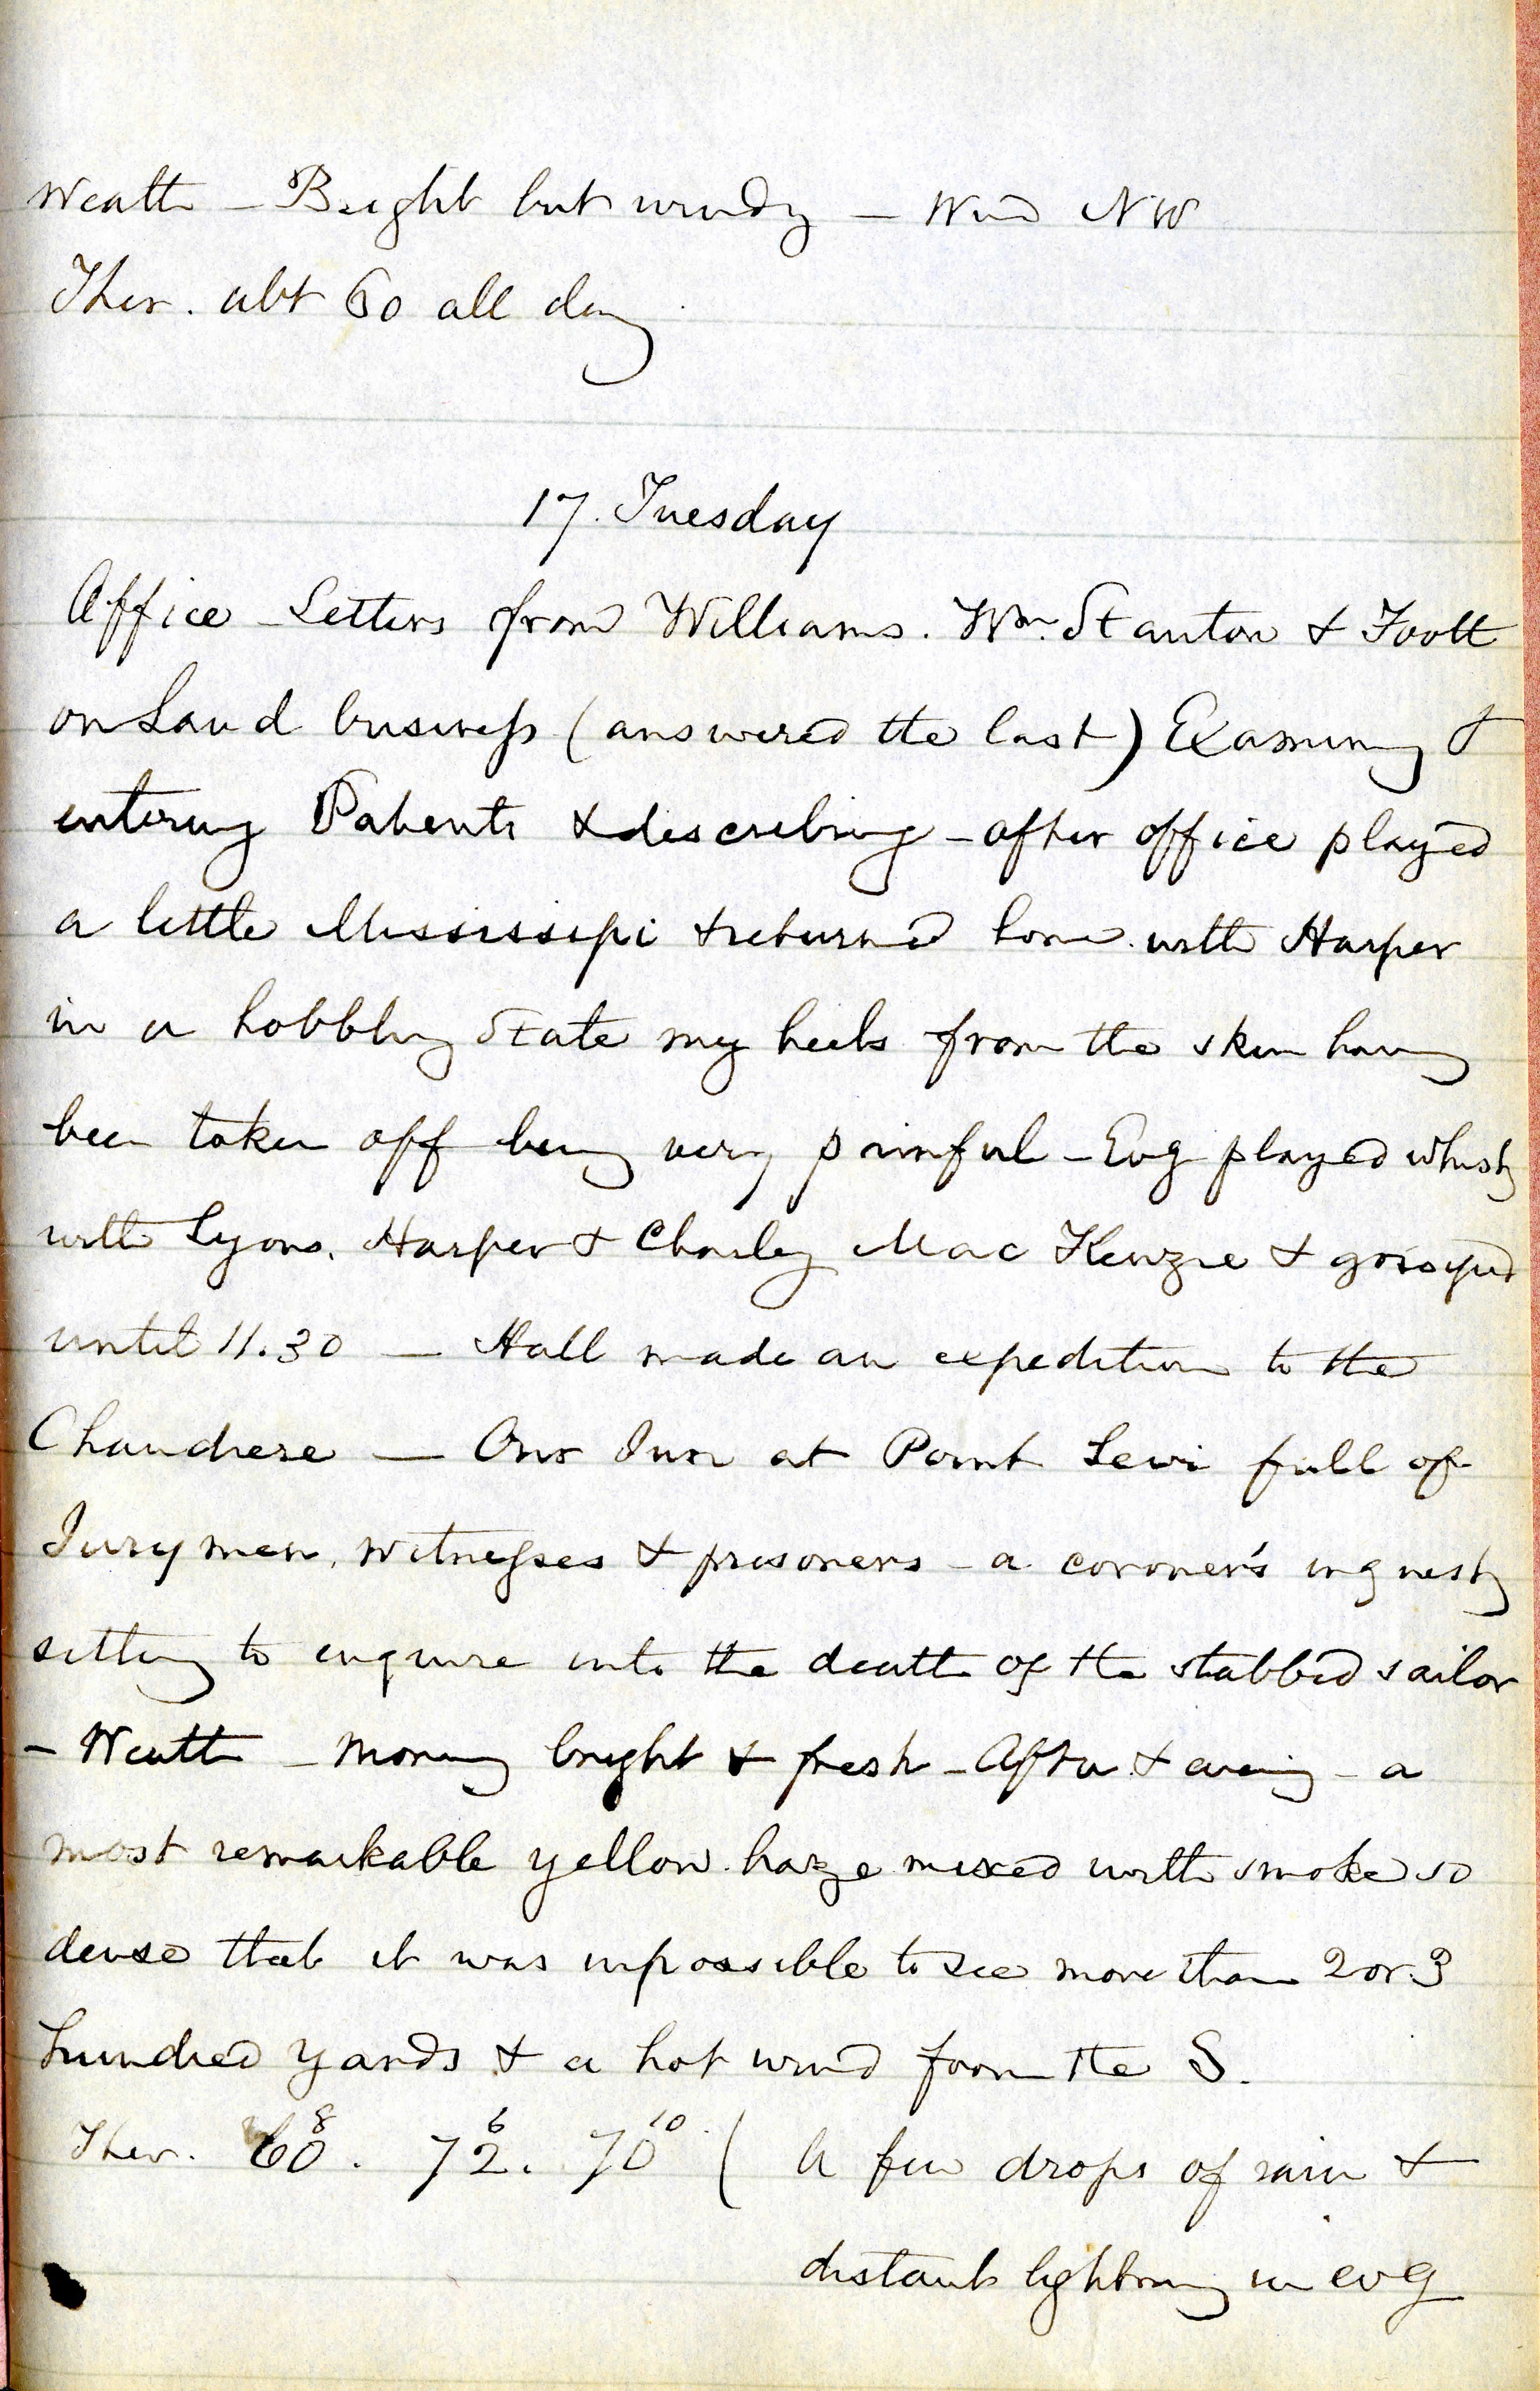 Weath - Bright but windy - Wind NW
Ther. abt 60 all day
17. Tuesday
Office - Letters from Williams. Wm. Stanton & Foott
on Land business (answered the last) Examining &
entering Patents & describing - after office played
a little Mississipi & returned home with Harper
in a hobbling State my heels from the skin having
been taken off being very painful - Evg played whist
with Lyons, Harper & Charley Mac Kenzie & gossiped
until 11.30 - Hall made an expedition to the
Chaudiere - Our Inn at Point Levi full of
Jurymen, witnesses & prisoners - a coroner's inquest
sitting to enquire into the death of the stabbed sailor
- Weath - Morning bright & fresh - Aftn & evening - a
most remarkable yellow haze mixed with smoke so
dense that it was impossible to see more than 2 or 3
hundred yards & a hot wind from the S.
Ther. 60 8. 72 6. 70 10 ( A few drops of rain &
distant lightning in evg